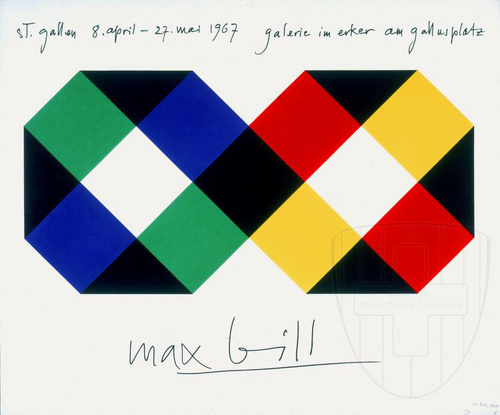 sT. gallen 8. april – 27. mai 1967 galerie im erker am gallusplatz
max bill